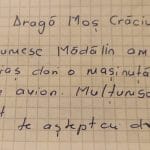 Dragă Moș Crăciu
umesc Mădălin am
iaș dori o mașinuță
avion. Mulțumesc
te aștept cu dr